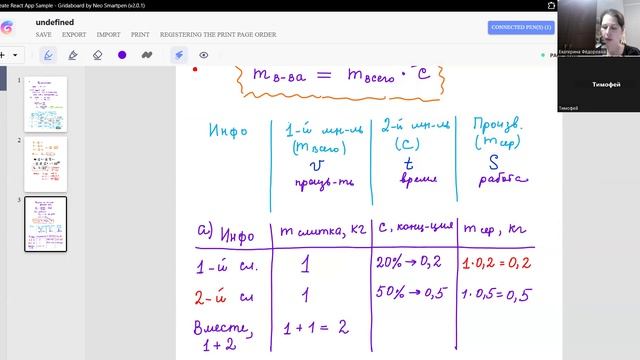 eate React App Sample - Gridaboard by Neo Smartpen (v2.0.1)
undefined
SAVE EXPORT IMPORT PRINT REGISTERING THE PRINT PAGE ORDER
CONNECTED PEN(S) (1)
Екатерина Фёдоровна
Тимофей
Тимофей
1
2
3
m в-ва = m всего · c
Инфо 1-й мн-ль 2-й мн-ль Произв.
(m всего) (c) (m сер)
v t S
произв-ть время работа
а) Инфо m слитка, кг c, конц-ция m сер, кг
1-й сл. 1 20% → 0,2 1·0,2 = 0,2
2-й сл 1 50% → 0,5 1·0,5 = 0,5
Вместе, 1 + 1 = 2
1+2